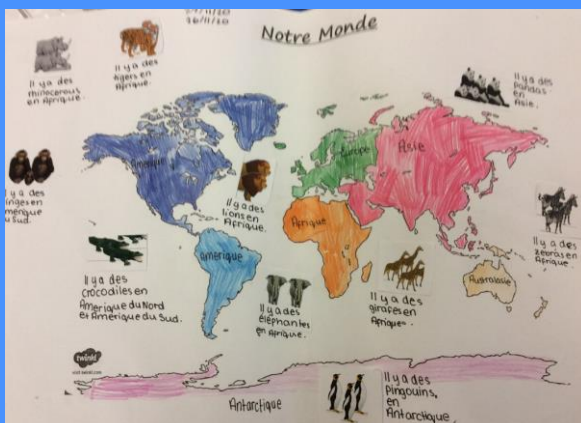 26/11/20
Notre Monde
Il y a des
rhinocerous
en Afrique.
Il y a des
tigers en
Afrique.
Il y a des
Pandas
en
Asie.
Il y a des
singes en
Amérique
du Sud.
Amérique
Il y a des
lions en
Afrique.
Europe
Asie
Afrique
Il y a des
zebras en
Afrique.
Il y a des
crocodiles en
Amérique du Nord
et Amérique du Sud.
amérique
Il y a des
éléphantes
en Afrique.
Il y a des
girafes en
Afrique.
Australasie
twinkl
Antarctique
Il y a des
Pingouins,
en
Antarctique.